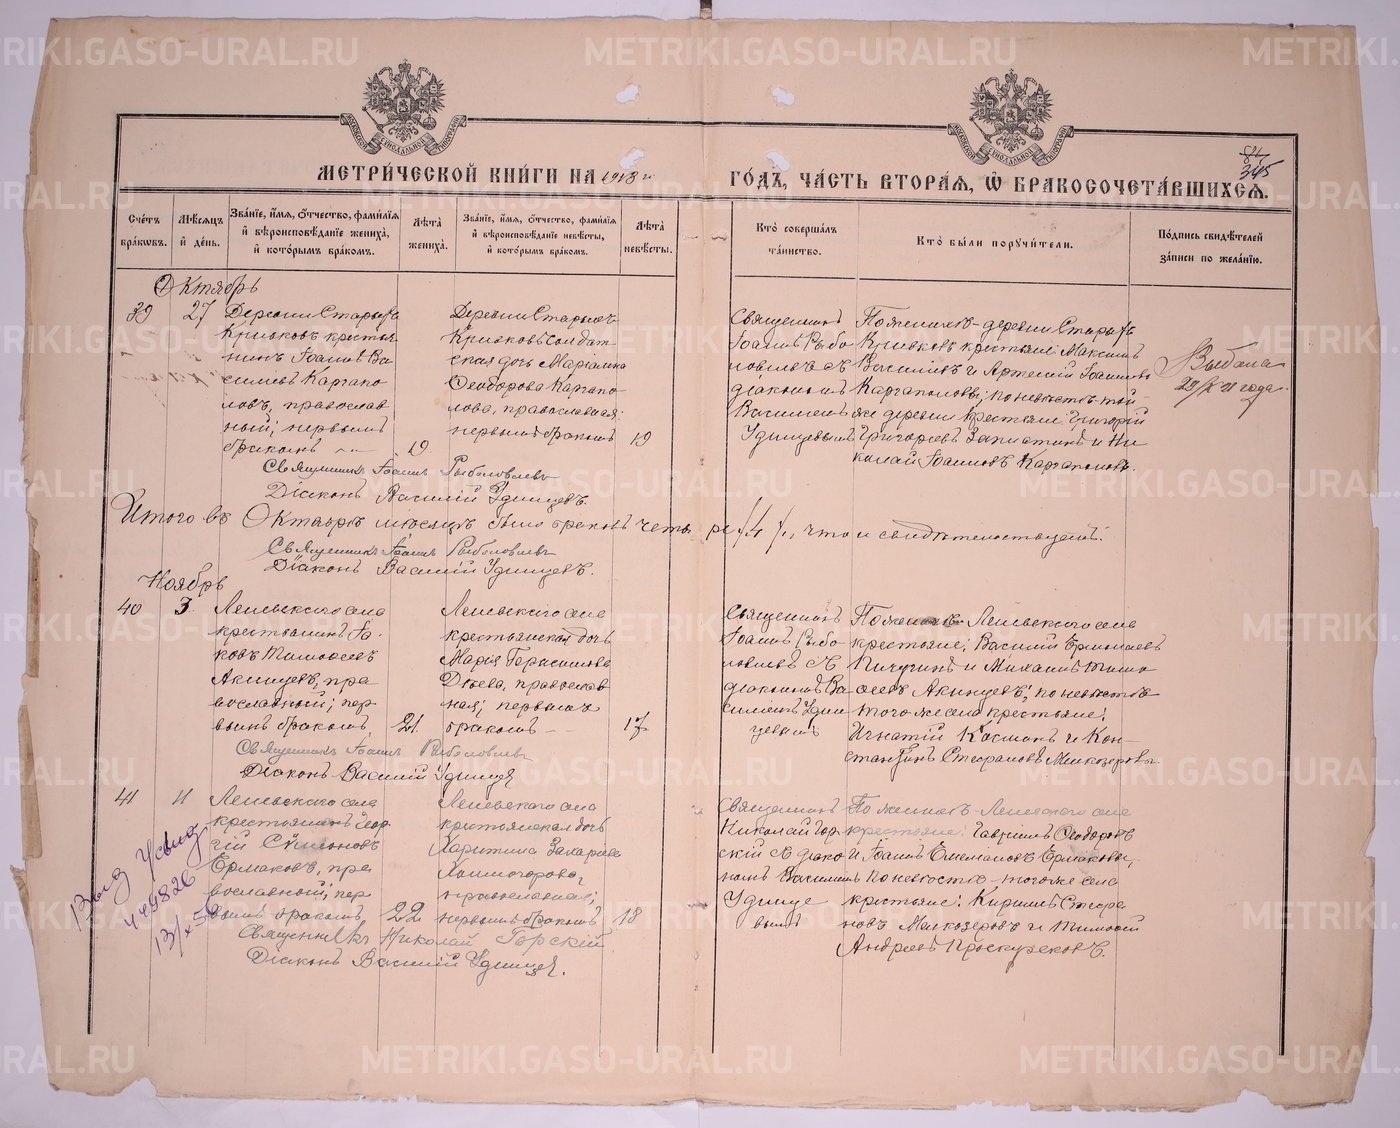 METRIKI.GASO-URAL.RU
84
345
МЕТРИ́ЧЕСКОЙ КНИ́ГИ НА 1918 г.
ГО́ДЪ, ЧА́СТЬ ВТОРА́Я, Ѿ БРАКОСОЧЕТА́ВШИХСЯ.
Сче́тъ бра́кѡвъ.
Мѣ́сяцъ и҆ де́нь.
Зва́нїе, и҆́мя, ѻ҆́тчество, фами́лїя и҆ вѣроисповѣ́данїе жениха̀, и҆ кото́рымъ бра́комъ.
Лѣ́та жениха̀.
Зва́нїе, и҆́мя, ѻ҆́тчество, фами́лїя и҆ вѣроисповѣ́данїе невѣ́сты, и҆ кото́рымъ бра́комъ.
Лѣ́та невѣ́сты.
Кто̀ соверша́лъ та́инство.
Кто̀ бы́ли порꙋчи́тели.
По́дпись свидѣ́телей за́писи по жела́нїю.
Октябрь
39
27
Деревни Старыхъ
Кривковъ крестья-
нинъ Іоаннъ Ва-
силіевъ Каргапо-
ловъ, православ-
ный; первымъ
бракомъ
19
Деревни Старыхъ
Кривковъ солдат-
ская дочь Маріамна
Ѳеодорова Каргапо-
лова, православная;
первымъ бракомъ
19
Священникъ
Іоаннъ Рыбо-
ловлевъ съ
діакономъ
Василіемъ
Удинцевымъ
По женихѣ деревни Старыхъ
Кривковъ крестьяне: Максимъ
Василіевъ и Артемій Іоанновъ
Каргаполовы; по невѣстѣ той-
же деревни крестьяне: Григорій
Григоріевъ Запасти­нъ и Ни-
колай Іоанновъ Каргаполовъ.
Выдана
года
Священникъ Іоаннъ Рыболовлевъ
Діаконъ Василій Удинцевъ.
Итого въ Октябрѣ мѣсяцѣ было браковъ четыре /4/, что и свидѣтельствуемъ:
Священникъ Іоаннъ Рыболовлевъ
Діаконъ Василій Удинцевъ.
Ноябрь
40
3
Леневского села
крестьянинъ Іа-
ковъ Тимоѳеевъ
Акинцевъ, пра-
вославный; пер-
вымъ бракомъ
21.
Леневского села
крестьянская дочь
Марія Герасимова
Дѣева, православ-
ная; первымъ
бракомъ
17
Священникъ
Іоаннъ Рыбо-
ловлевъ съ
діакономъ Ва-
силіемъ Удин-
цевымъ
По женихѣ Леневского села
крестьяне: Василій
Пичугинъ и Михаилъ Тимо-
ѳеевъ Акинцевъ; по невѣстѣ
того же села крестьяне:
Игнатій Косминъ и Кон-
стантинъ Стефановъ Мелкозеровы.
Священникъ Іоаннъ Рыболовлевъ
Діаконъ Василій Удинцевъ
41
11
Леневского села
крестьянинъ Геор-
гій Симеоновъ
Ермаковъ, пра-
вославный; пер-
вымъ бракомъ,
22
Леневского села
крестьянская дочь
Харитина Захаріева
Холмогорова,
православная;
первымъ бракомъ
18
Священникъ
Николай Гор-
скій съ діако-
номъ Василіемъ
Удинце-
вымъ
По женихѣ Леневского села
крестьяне: Гавріилъ Ѳеодоровъ
и Іоаннъ Емеліановъ Ермаковы,
по невѣстѣ того же села
крестьяне: Кириллъ Стефа-
новъ Мелкозеровъ и Тимоѳей
Андреевъ Проскуряковъ.
Священникъ Николай Горскій
Діаконъ Василій Удинцев.
449826
13/х 56